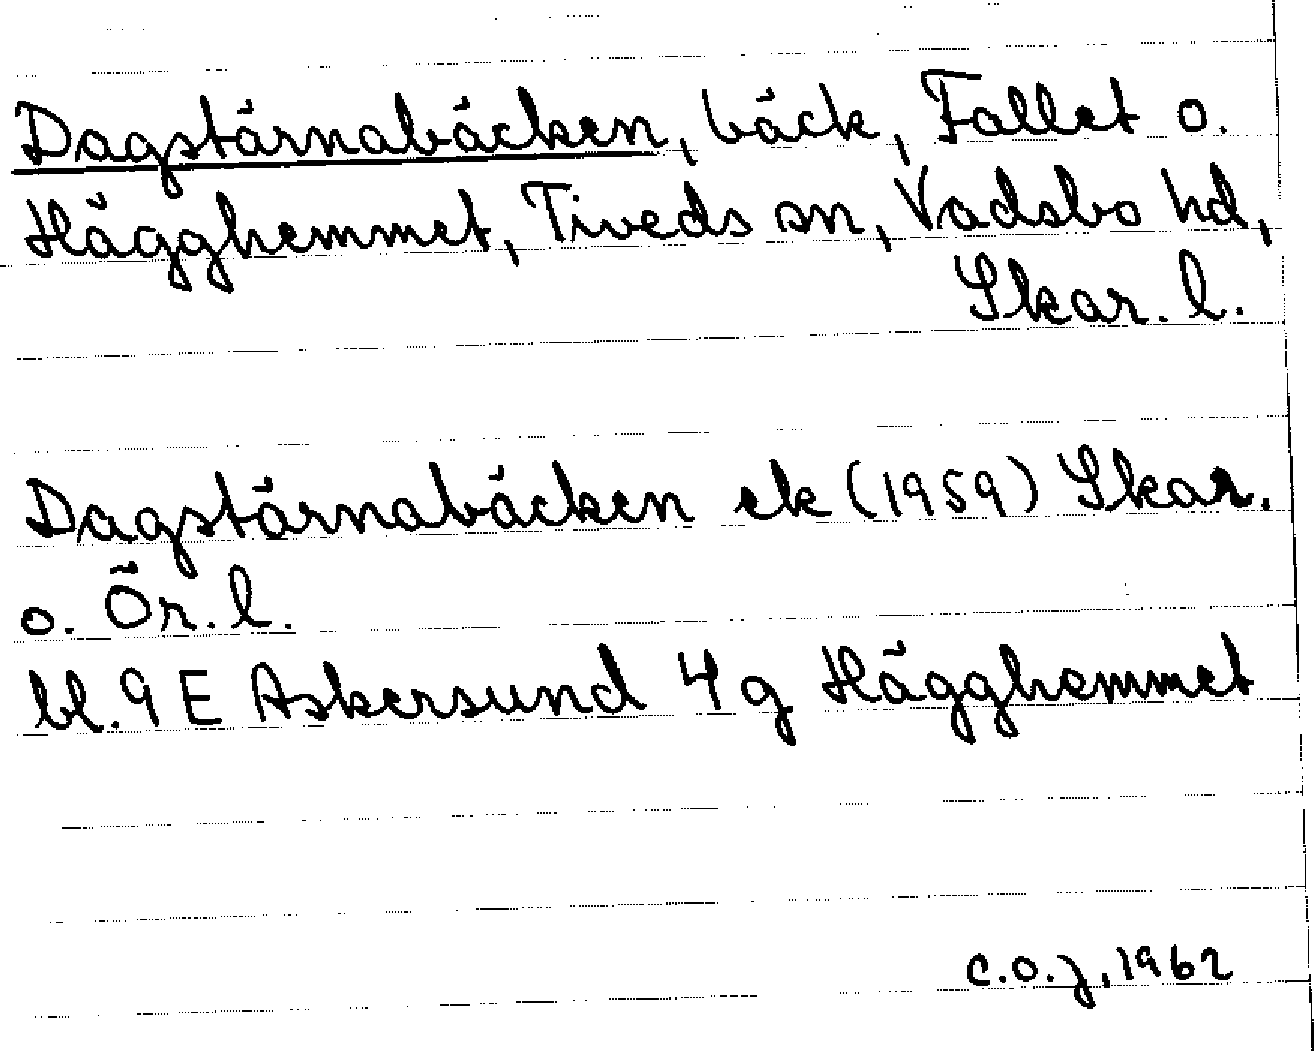 Dagstärnabäcken, bäck, Fallet o.
Hägghemmet, Tiveds sn, Vadsbo hd,
Skar. l.
Dagstärnabäcken ek (1959) Skar.
o. Ör. l.
bl. 9 E Askersund 4 g Hägghemmet
C.O.J. 1962